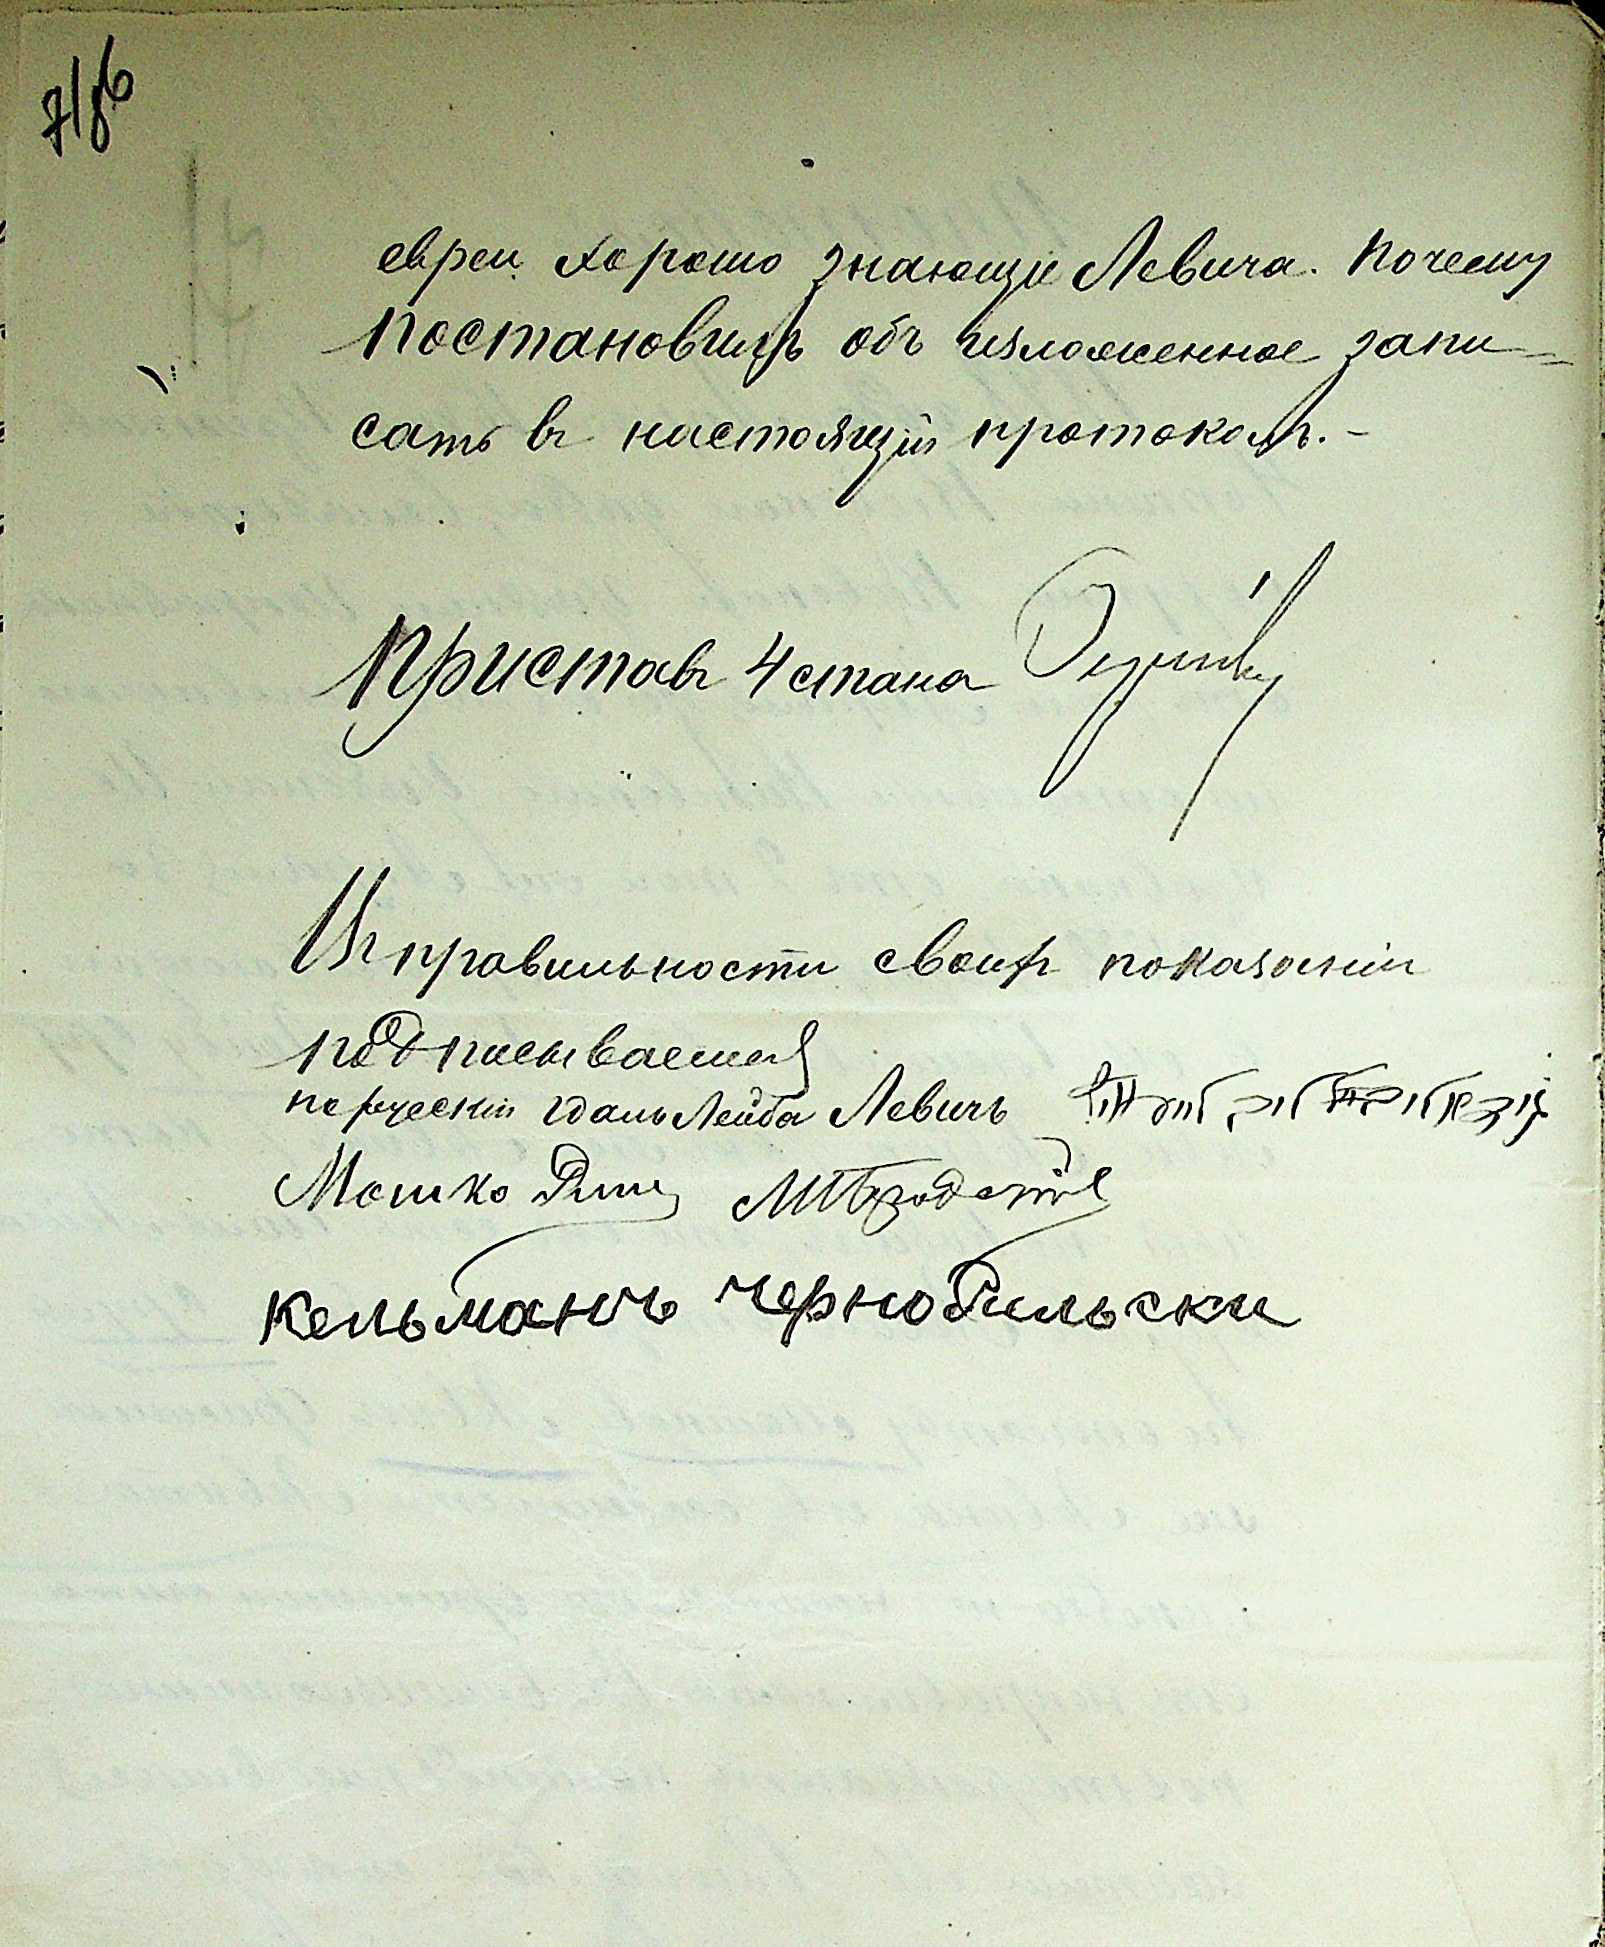 евреи хорошо знающіе Левича. Почему
постановилъ объ изложенное запи=
сать въ настоящій протоколъ.-
Приставъ 4 стана
Въ правильности своихъ показаній
подписываемся
по русскій Гдаль Лейба Левичъ
Мошко МШБродскій
Кельманъ Чернобильски